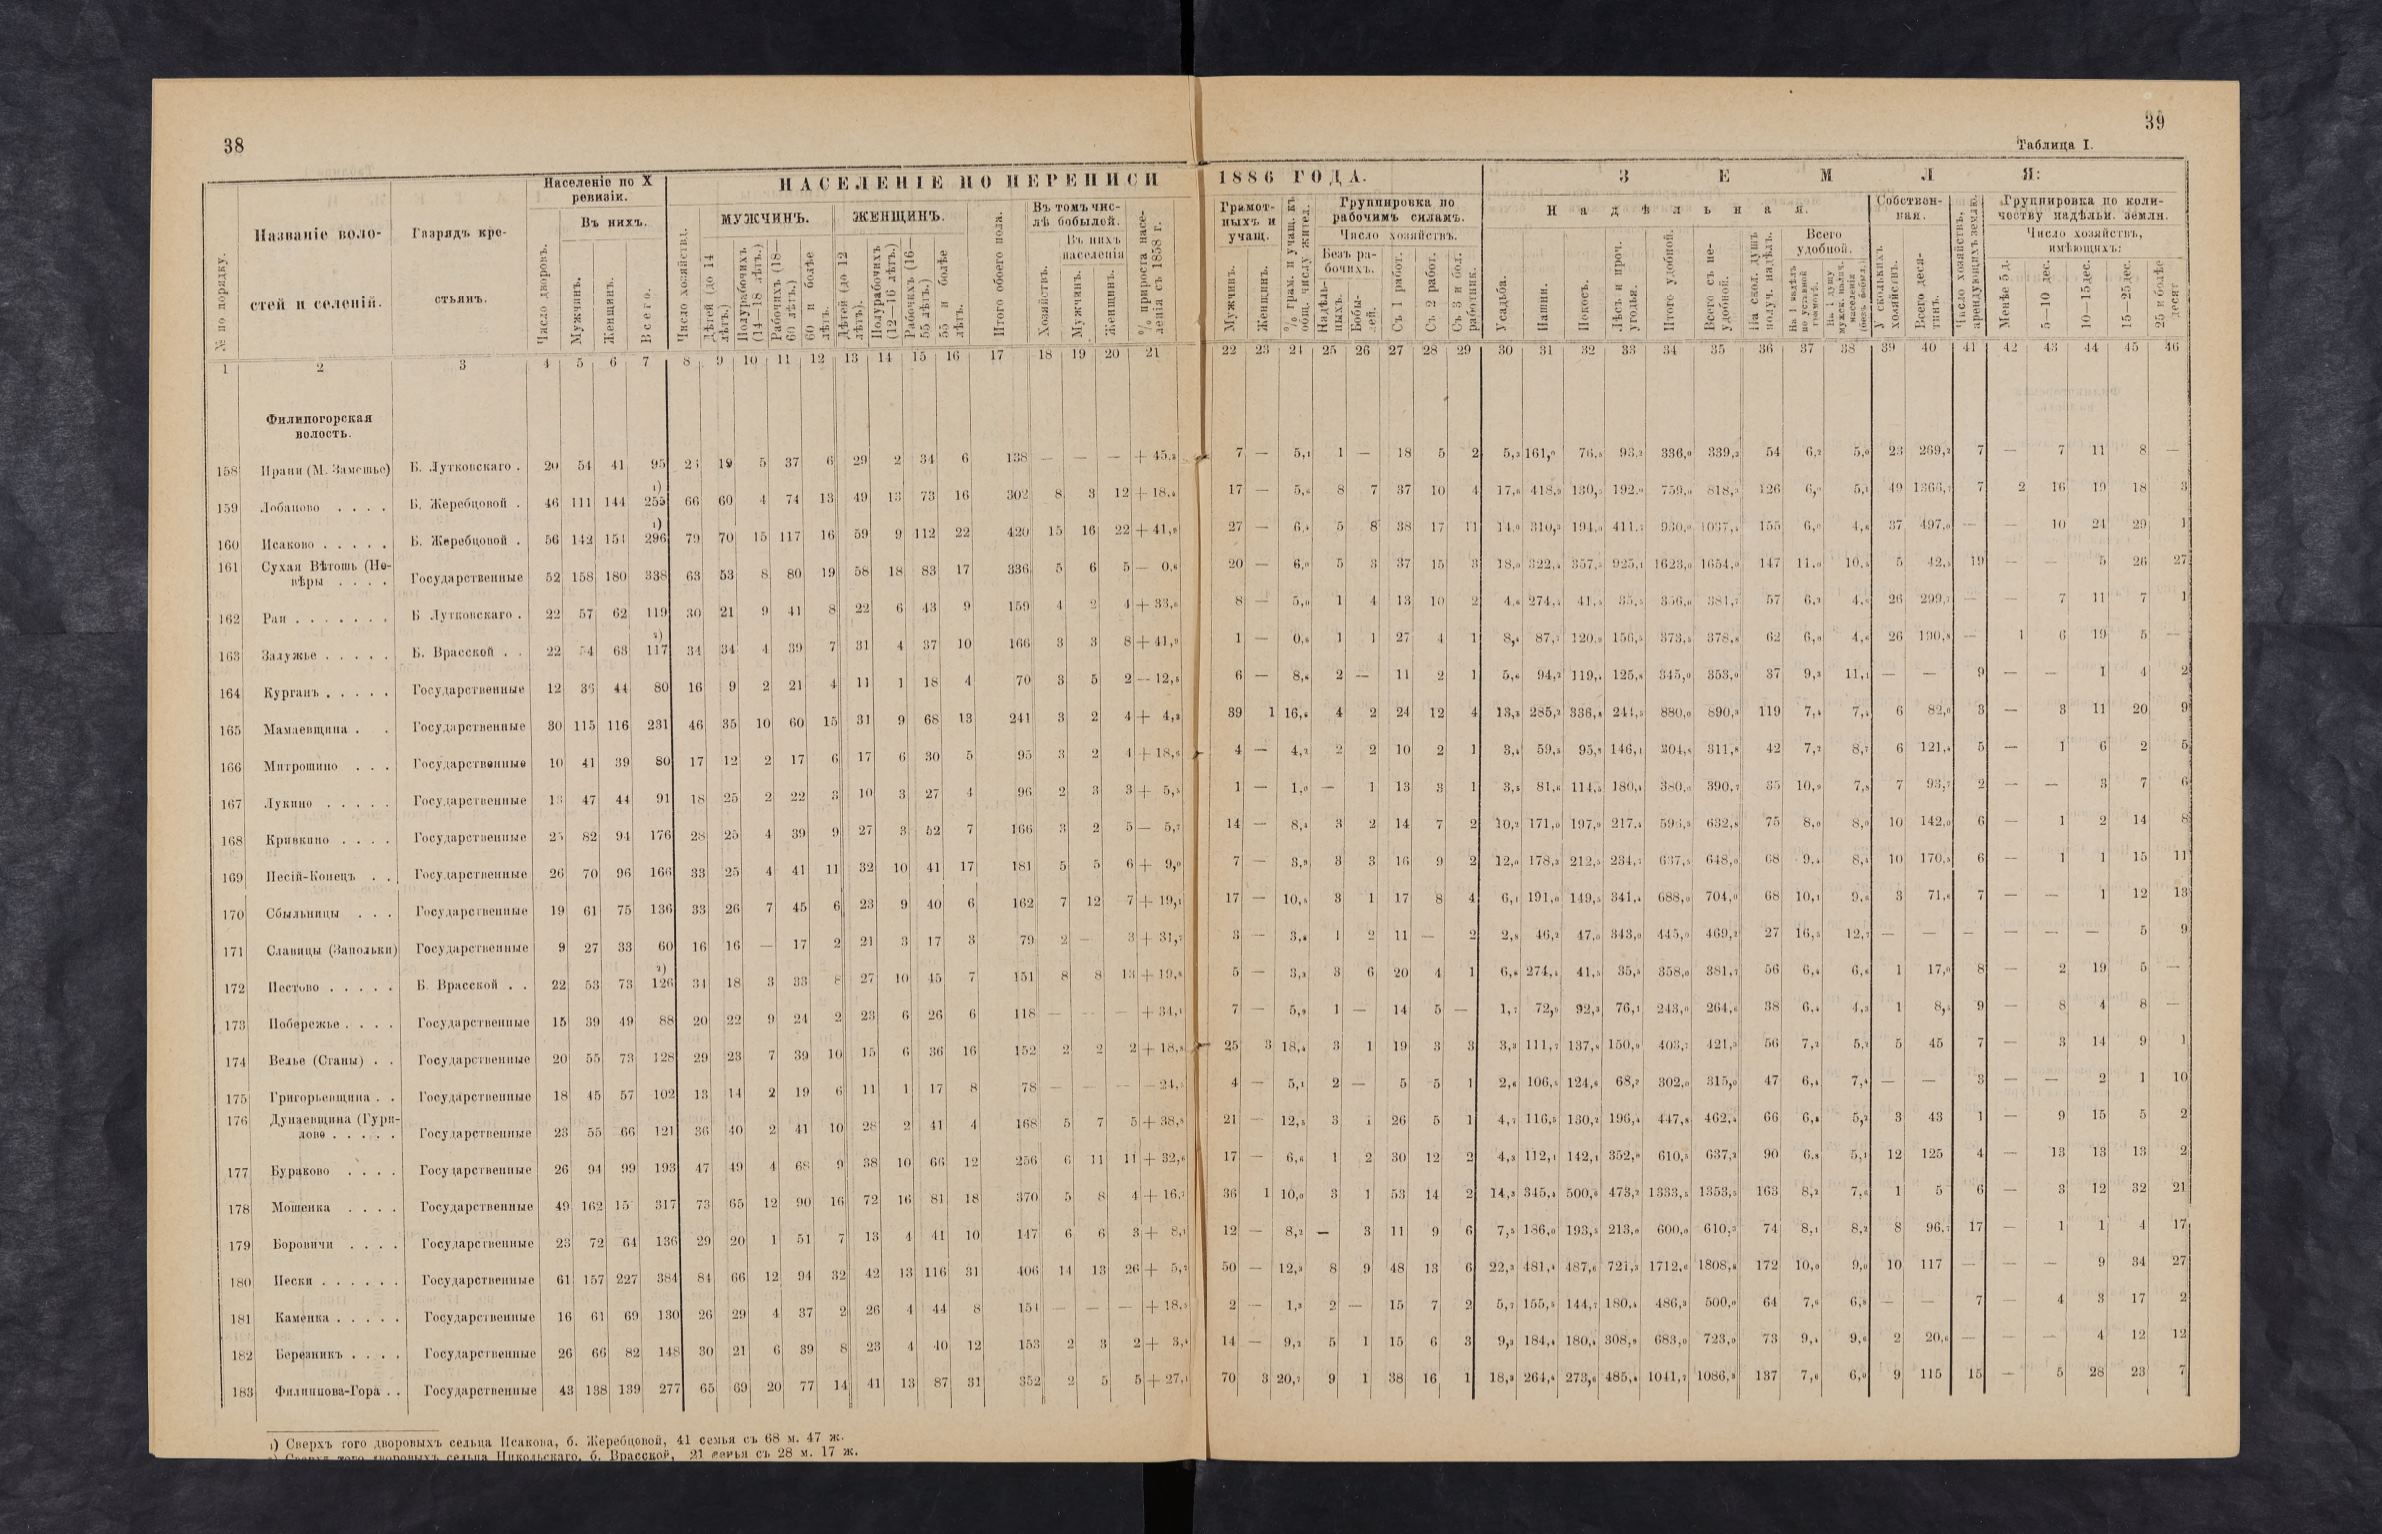 38
39
Таблица I.
№ по порядку.
Названіе воло-
стей и селеній.
Разрядъ кре-
стьянъ.
Населеніе по X
ревизіи.
Число дворовъ.
Въ нихъ.
Мужчинъ.
Женщинъ.
Всего.
НАСЕЛЕНІЕ ПО ПЕРЕПИСИ
1886 ГОДА.
Число хозяйствъ.
МУЖЧИНЪ.
Дѣтей (до 14
лѣтъ.)
Полурабочихъ
(14—18 лѣтъ.)
Рабочихъ (18—
60 лѣтъ.)
60 и болѣе
лѣтъ.
ЖЕНЩИНЪ.
Дѣтей (до 12
лѣтъ).
Полурабочихъ
(12—16 лѣтъ.)
Рабочихъ (16—
55 лѣтъ.)
55 и болѣе
лѣтъ.
Итого обоего пола.
Въ томъ чис-
лѣ бобылей.
Хозяйствъ.
Въ нихъ
населенія
Мужчинъ.
Женщинъ.
% прироста насе-
ленія съ 1858 г.
Грамот-
ныхъ и
учащ.
Мужчинъ.
Женщинъ.
% грам. и учащ. къ
общ. числу жител.
Группировка по
рабочимъ силамъ.
Число хозяйствъ.
Безъ ра-
бочихъ.
Надѣль-
ныхъ.
Бобы-
лей.
Съ 1 работ.
Съ 2 работ.
Съ 3 и бол.
работник.
ЗЕМЛЯ:
Надѣльная.
Усадьба.
Пашни.
Покосъ.
Лѣсъ и проч.
угодья.
Итого удобной.
Всего съ не-
удобной.
На скол. душъ
получ. надѣлъ.
Всего
удобной.
На 1 надѣлъ
по уставной
грамотѣ.
На 1 душу
мужск. налич.
населенія
(безъ бобыл.)
Собствен-
ная.
У сколькихъ
хозяйствъ.
Всего деся-
тинъ.
Число хозяйствъ,
арендующихъ землю.
Группировка по коли-
честву надѣльн. земли.
Число хозяйствъ,
имѣющихъ:
Менѣе 5 д.
5—10 дес.
10—15 дес.
15—25 дес.
25 и болѣе
десят
1 2 3 4 5 6 7 8 9 10 11 12 13 14 15 16 17 18 19 20 21 22 23 24 25 26 27 28 29 30 31 32 33 34 35 36 37 38 39 40 41 42 43 44 45 46
Филипогорская
волость.
158 Ирапи (М. Замошье) Б. Лутковскаго . 20 54 41 95 19 5 37 6 29 2 34 6 138 — — — + 45,2 7 — 5,1 1 — 18 5 2 5,3 161,0 76,5 93,2 336,0 339,3 54 6,2 5,0 23 269,2 7 — 7 11 8 —
159 Лобаново . . . . Б. Жеребцовой . 46 111 144 255 1) 66 60 4 74 13 49 13 73 16 302 8 3 12 + 18,4 17 — 5,6 8 7 37 10 4 17,6 418,9 130,5 192,0 759,0 818,3 126 6,0 5,1 49 1366,7 7 2 16 19 18 3
160 Исаково . . . . . Б. Жеребцовой . 56 142 154 296 1) 79 70 15 117 16 59 9 112 22 420 15 16 22 + 41,9 27 — 6,4 5 8 38 17 11 14,0 310,3 194,0 411,7 930,0 1037,4 155 6,0 4,6 37 497,0 — — 10 24 29 1
161 Сухая Вѣтошь (Не-
вѣры . . . . Государственные 52 158 180 338 63 53 8 80 19 58 18 83 17 336 5 6 5 — 0,6 20 — 6,0 5 3 37 15 3 18,0 322,4 357,5 925,1 1623,0 1654,0 147 11,0 10,5 5 42,5 19 — — 5 26 27
162 Раи . . . . . . . Б Лутковскаго . 22 57 62 119 30 21 9 41 8 22 6 43 9 159 4 2 4 + 33,6 8 — 5,0 1 4 13 10 2 4,6 274,5 41,5 35,5 356,0 381,7 57 6,2 26 299,7 — — 7 11 7 1
163 Залужье . . . . . Б. Врасской . . 22 54 63 117 2) 34 34 4 39 7 31 4 37 10 166 3 3 8 + 41,9 1 — 0,6 1 1 27 4 1 8,4 87,7 120,9 156,5 373,5 378,8 62 6,0 4,6 26 190,8 — 1 6 19 5 —
164 Курганъ . . . . . Государственные 12 36 44 80 16 9 2 21 4 11 1 18 4 70 3 5 2 — 12,5 6 — 8,6 2 — 11 2 1 5,6 94,2 119,4 125,8 345,0 353,0 37 9,3 11,1 — — 9 — — 1 4 2
165 Мамаевщина . . Государственные 30 115 116 231 46 35 10 60 15 31 9 68 13 241 3 2 4 + 4,3 39 1 16,6 4 2 24 12 4 13,3 285,2 336,8 244,5 880,0 890,3 119 7,4 7,4 6 82,0 3 — 3 11 20 9
166 Митрошино . . . Государственные 10 41 39 80 17 12 2 17 6 17 6 30 5 95 3 2 4 + 18,8 4 — 4,2 2 2 10 2 1 3,4 59,5 95,8 146,1 304,8 311,8 42 7,2 8,7 6 121,4 5 — 1 6 2 5
167 Лукино . . . . . Государственные 13 47 44 91 18 25 2 22 3 10 3 27 4 96 2 3 3 + 5,5 1 — 1,0 — 1 13 3 1 3,5 81,6 114,5 180,4 380,0 390,7 35 10,9 7,8 7 93,7 2 — — 3 7 6
168 Кривкино . . . . Государственные 25 82 94 176 28 25 4 39 9 27 3 52 7 166 3 2 5 — 5,7 14 — 8,4 3 2 14 7 2 10,2 171,0 197,9 217,4 596,5 632,8 75 8,0 8,0 10 142,0 6 — 1 2 14 8
169 Песій-Конецъ . . Государственные 26 70 96 166 33 25 4 41 11 32 10 41 17 181 5 5 6 + 9,0 7 — 3,9 3 3 16 9 2 12,0 178,3 212,5 234,7 637,5 648,0 68 9,4 8,4 10 170,5 6 — 1 1 15 11
170 Сбыльницы . . . Государственные 19 61 75 136 33 26 7 45 6 23 9 40 6 162 7 12 7 + 19,1 17 — 10,5 3 1 17 8 4 6,1 191,0 149,5 341,4 688,0 704,0 68 10,1 9,6 3 71,6 7 — — 1 12 13
171 Славицы (Запольки) Государственные 9 27 33 60 16 16 — 17 2 21 3 17 3 79 2 — 3 + 31,7 3 — 3,8 1 2 11 — 2 2,8 46,2 47,0 343,0 445,0 469,2 27 16,5 12,7 — — — — — — 5 9
172 Пестово . . . . . Б. Врасской . . 22 53 73 126 2) 34 18 3 33 8 27 10 45 7 151 8 8 13 + 19,8 5 — 3,3 3 6 20 4 1 6,6 274,4 41,5 35,5 358,0 381,7 56 6,4 6,6 1 17,0 8 — 2 19 5 —
173 Побережье . . . . Государственные 15 39 49 88 20 22 9 24 2 23 6 26 6 118 — — — + 34,1 7 — 5,9 1 — 14 5 — 1,7 72,9 92,3 76,1 243,0 264,6 38 6,4 4,3 1 8,5 9 — 8 4 8 —
174 Велье (Станы) . . Государственные 20 55 73 128 29 23 7 39 10 15 6 36 16 152 2 2 2 + 18,8 25 3 18,4 3 1 19 3 3 3,3 111,7 137,8 150,9 403,7 421,3 56 7,2 5,2 5 45 7 — 3 14 9 1
175 Григорьевщина . . Государственные 18 45 57 102 13 14 2 19 6 11 1 17 8 78 — — — — 24,5 4 — 5,1 2 — 5 5 1 2,6 106,5 124,6 68,2 302,0 315,0 47 6,4 7,4 — — 3 — — 2 1 10
176 Дунаевщина (Гури-
лово . . . . . Государственные 23 55 66 121 36 40 2 41 10 28 2 41 4 168 5 7 5 + 38,8 21 — 12,5 3 1 26 5 1 4,7 116,5 130,2 196,4 447,8 462,4 66 6,8 5,2 3 43 1 — 9 15 5 2
177 Бураково . . . . Государственные 26 94 99 193 47 49 4 68 9 38 10 66 12 256 6 11 11 + 32,6 17 — 6,6 1 2 30 12 2 4,3 112,1 142,1 352,0 610,5 637,3 90 6,8 5,1 12 125 4 — 13 13 13 2
178 Мошенка . . . . Государственные 49 162 317 73 65 12 90 16 72 16 81 18 370 5 8 4 + 16,7 36 1 10,0 3 1 53 14 2 14,3 345,4 500,6 473,2 1333,5 1353,5 163 8,2 7,6 1 5 6 — 3 12 32 21
179 Боровичи . . . . Государственные 23 72 64 136 29 20 1 51 7 13 4 41 10 147 6 6 3 + 8,1 12 — 8,2 — 3 11 9 6 7,5 186,0 193,5 213,0 600,0 610,3 74 8,1 8,2 8 96,7 17 — 1 1 4 17
180 Пески . . . . . . Государственные 61 157 227 384 84 66 12 94 32 42 13 116 31 406 14 13 26 + 5,7 50 — 12,3 8 9 48 13 6 22,3 481,4 487,6 721,3 1712,6 1808,8 172 10,0 9,0 10 117 — — — 9 34 27
181 Каменка . . . . . Государственные 16 61 69 130 26 29 4 37 2 26 4 44 8 154 — — — + 18,5 2 — 1,3 2 — 15 7 2 5,7 155,5 144,7 180,4 486,3 500,0 64 7,6 6,8 — — 7 — 4 3 17 2
182 Березникъ . . . . Государственные 26 66 82 148 30 21 6 39 8 23 4 40 12 153 2 3 2 + 3,4 14 — 9,2 5 1 15 6 3 9,3 184,4 180,4 308,9 683,0 723,0 73 9,4 9,6 2 20,6 — — — 4 12 12
183 Филиппова-Гора . . Государственные 43 138 139 277 65 69 20 77 14 41 13 87 31 352 2 5 5 + 27,1 70 3 20,7 9 1 38 16 1 18,3 264,4 273,6 485,4 1041,7 1086,3 137 7,6 6,0 9 115 15 — 5 28 23 7
1) Сверхъ того дворовыхъ сельца Исакова, б. Жеребцовой, 41 семья съ 68 м. 47 ж.
2) Сверхъ того дворовыхъ сельца Никольскаго, б. Врасской, 21 семья съ 28 м. 17 ж.